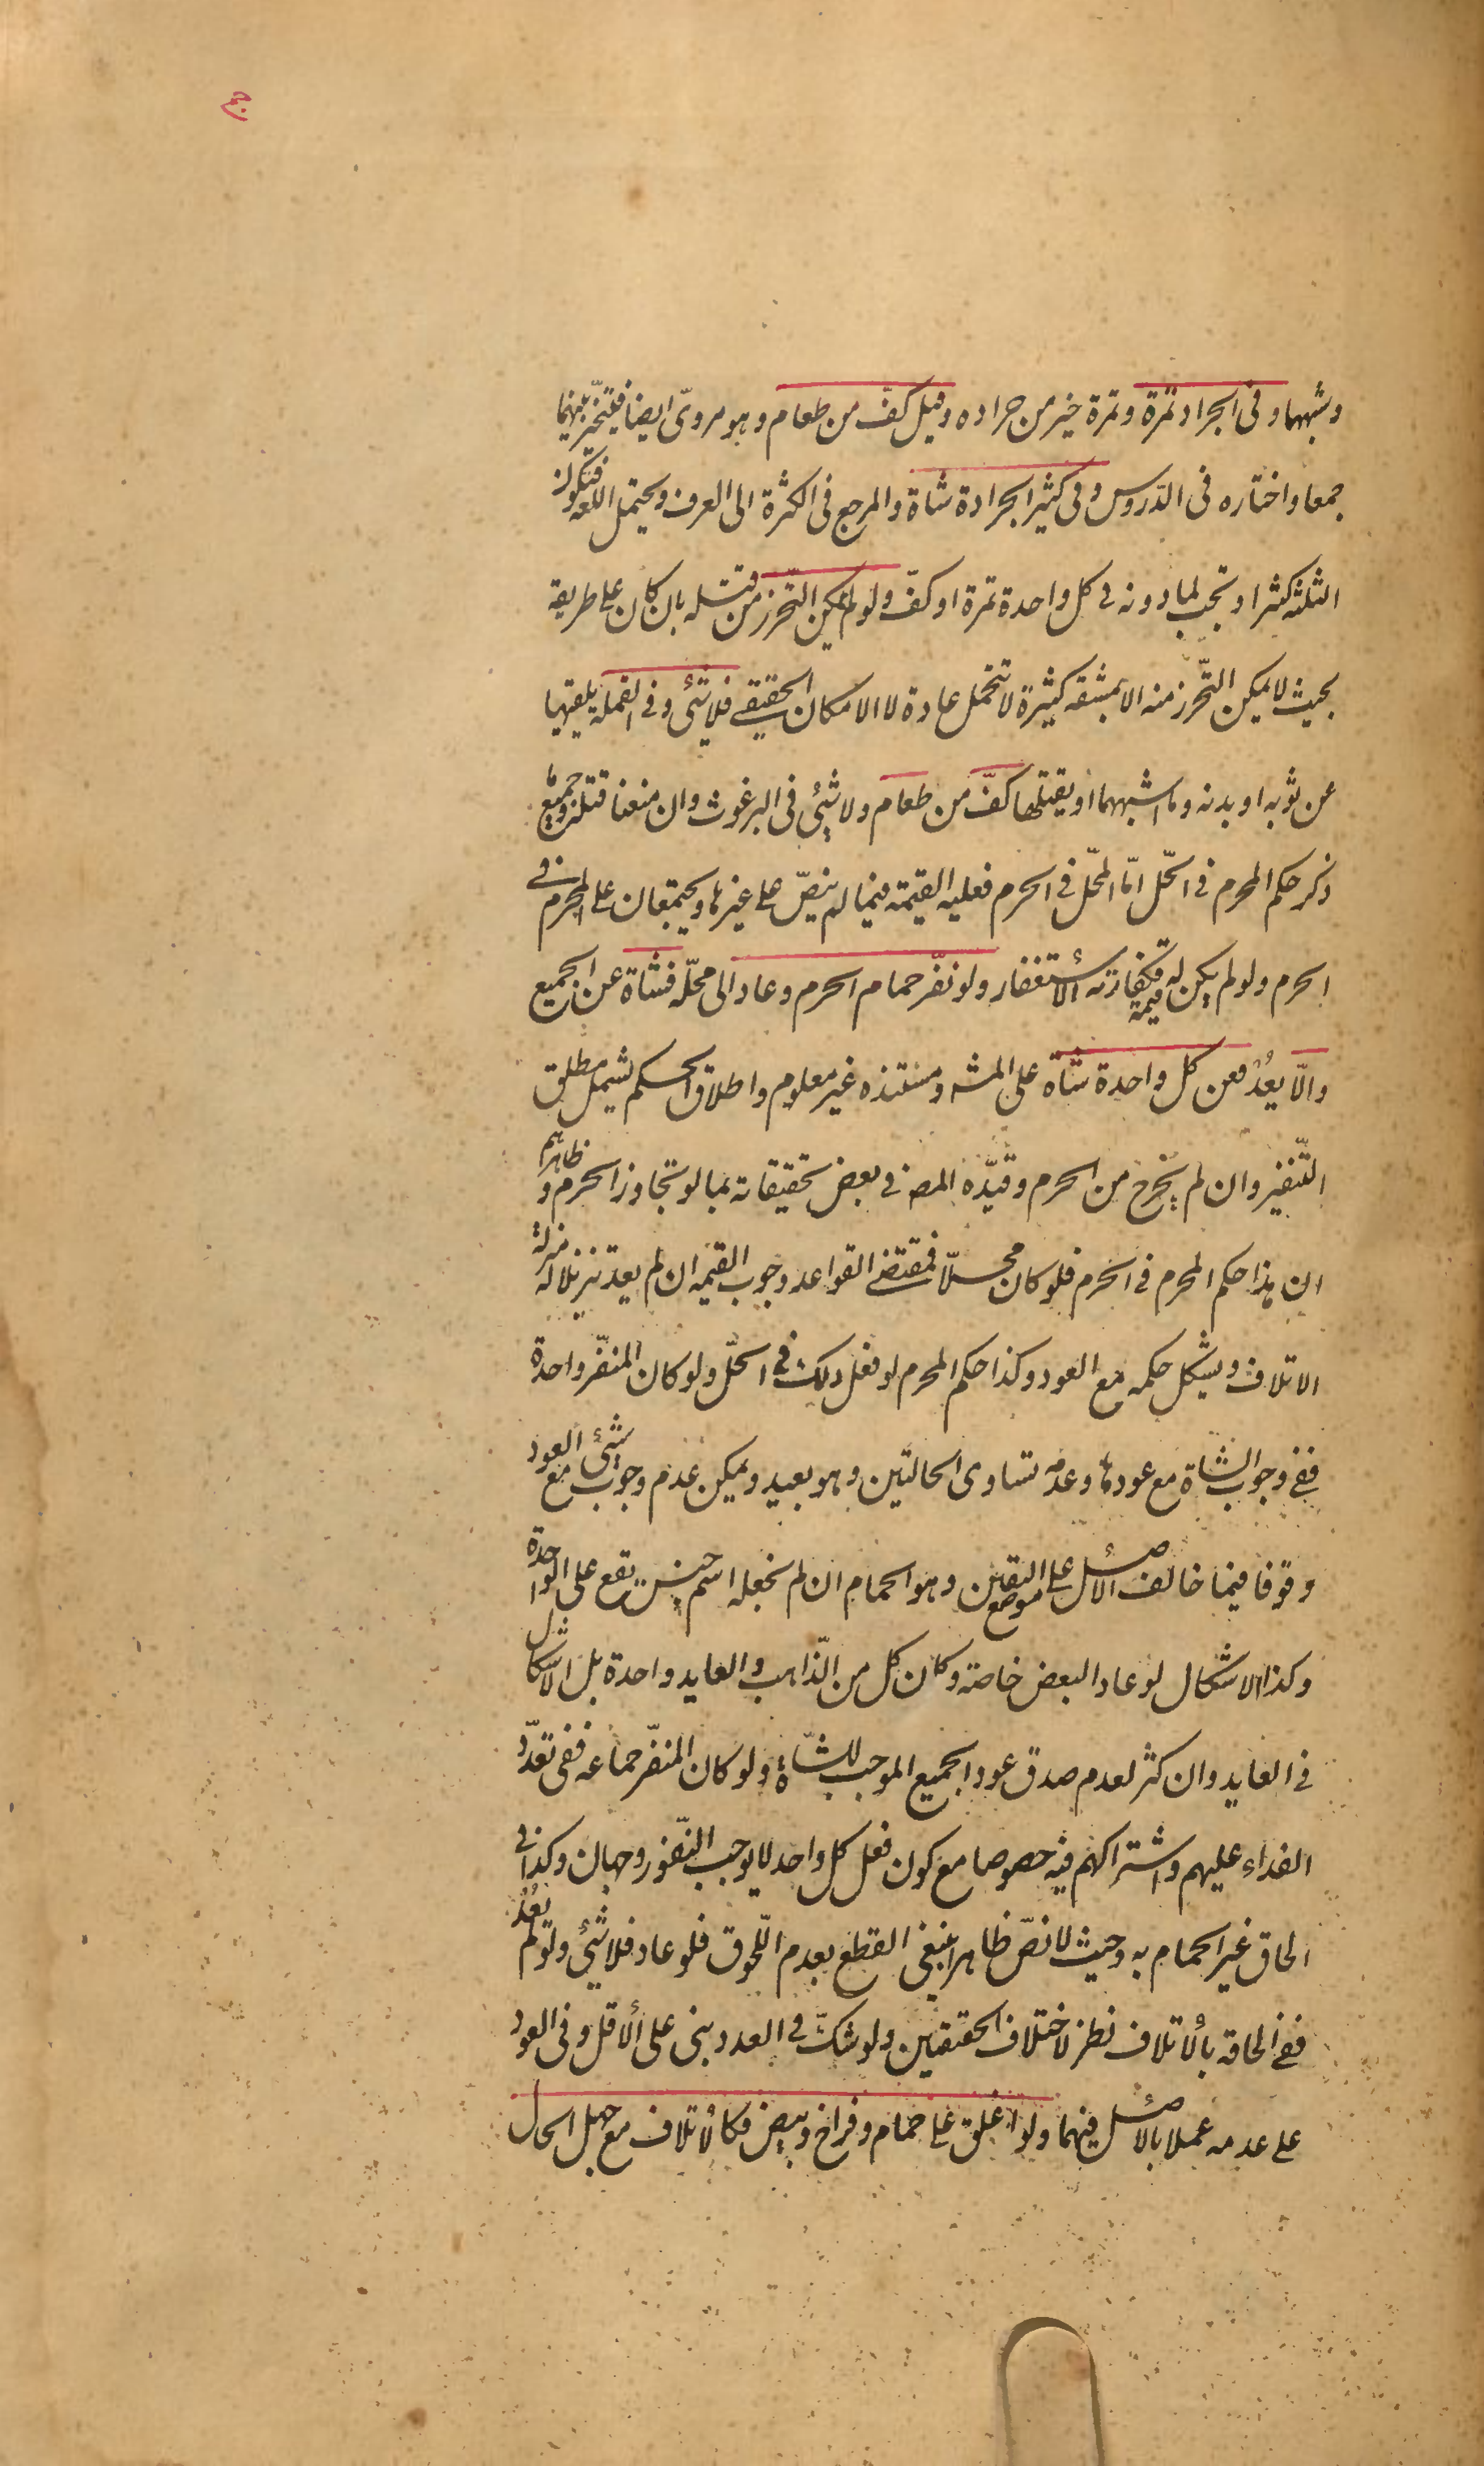 وشبهها وفى الجراد تمرة وتمرة خير من جراده وقيل كفّ من طعام وهو مروىّ ايضا فيتخيّر بينهما
جمعا واختاره فى الدّروس وفى كثير الجرادة شاة والمرجع فى الكثرة الى العرف ويحتمل اللغه فتكون
الثلثه كثيرا وتجب لما دونه فى كل واحدة تمرة او كفّ ولو لم يمكن التّحرز من قتله بان كان على طريقه
بحيث لا يمكن التّحرز منه الا بمشقه كثيرة لا تتحمل عادة لا الامكان الحقيقى فلا شئ وفى القملة يلقيها
عن ثوبه او بدنه وما اشبههما او يقتلها كفّ من طعام ولا شئ فى البرغوث وان منعنا قتله وجميع ما
ذكر حكم المحرم فى الحّل امّا المحّل فى الحرم فعليه القيمة فيما لم ينصّ على غيرها ويجتمعان على المحرم فى
الحرم ولو لم يكن له قيمة فكفارته الاستغفار ولو نفّر حمام الحرم وعاد الى محلّه فشاة عن الجميع
والّا يعدُ فعن كل واحدة شاة على المشه ومستنده غير معلوم واطلاق الحكم يشمل مطلق
التّنفير وان لم يخرج من الحرم وقيّده المص فى بعض تحقيقاته بما لو تجاوز الحرم وظاهرهم
ان هذا حكم المحرم فى الحرم فلو كان محلّا فمقتضى القواعد وجوب القيمه ان لم يعد تنزيلا له منزلة
الاتلاف ويشكل حكمه مع العود وكذا حكم المحرم لو فعل ذلك فى الحّل ولو كان المنفّر واحدة
ففى وجوب الشاة مع عودها وعدمه تساوى الحالتين وهو بعيد ويمكن عدم وجوب شئ مع العود
وقوفا فيما خالف الاصل على موضع اليقين وهو الحمام ان لم نجعله اسم جنس يقع على الواحدة
وكذا الاشكال لو عاد البعض خاصة وكان كل من الذّاهب والعايد واحدة بل الاشكال
فى العايد وان كثر لعدم صدق عود الجميع الموجب للشّاة ولو كان المنفّر جماعه ففى تعدّد
الفداء عليهم واشتراكهم فيه خصوصا مع كون فعل كل واحد لا يوجب النّفور وجهان وكذا فى
الحاق غير الحمام به وحيث لا نصّ ظاهرا ينبغى القطع بعدم اللّحوق فلو عاد فلا شئ ولو لم يعُد
ففى الحاقه بالاتلاف نظر لاختلاف الحقيقتين ولو شكّ فى العدد بنى على الاقل وفى العود
على عدمه عملا بالاصل فيهما ولو اغلق على حمام وفراخ وبيض فكالاتلاف مع جهل الحال